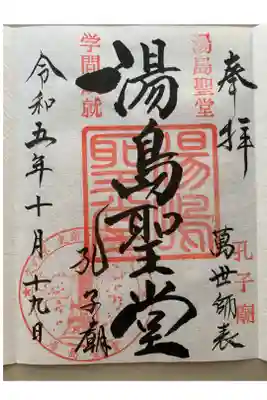 奉拝
湯島聖堂
孔子廟
萬世師表
湯島聖堂
孔子廟
学問成就
令和五年十月十九日